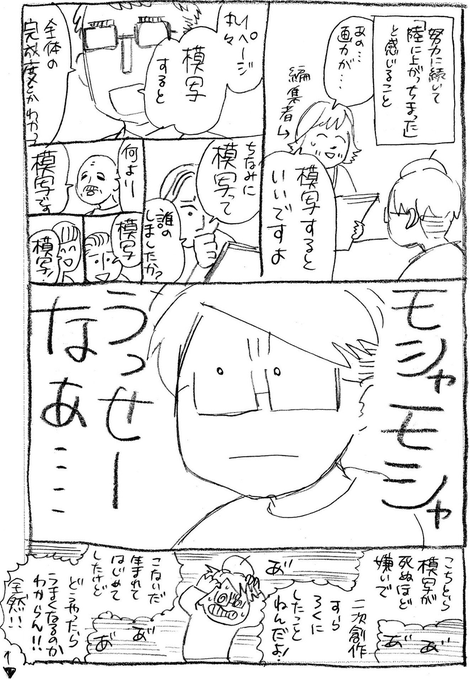 努力に続いて
「陸に上がっちまった」
と感じること
あの…
画力が…
編集者→
模写すると
いいですよ
1ページ
丸々
模写
すると
全体の
完成度とかわかっ
ちなみに
模写って
誰の
しましたか?
何より
模写です
模写
模写!
モシャモシャ
うっせー
なあ…
こちとら
模写が
死ぬほど
嫌いで
二次創作
すら
ろくに
したこと
ねんだよ!
あ゛
あ゛
あ゛
あ゛
こないだ
生まれて
はじめて
したけど
どこやったら
うまくなるか
わからん!!
全然!!